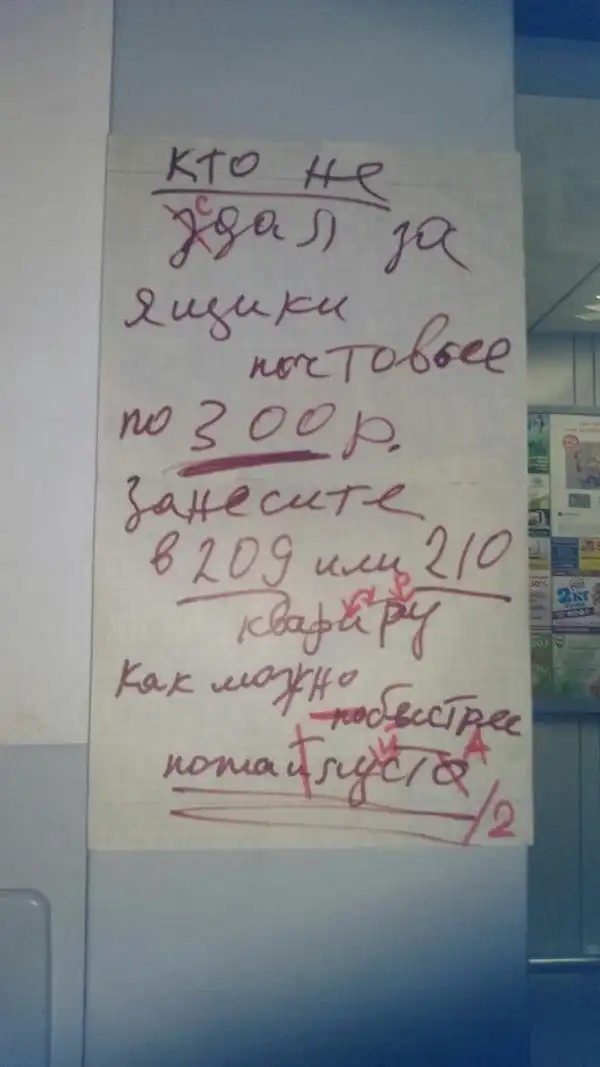 кто не
здал за
с
ящики
почтовые
по 300 р.
Занесите
в 209 или 210
квариру
Как можно
побыстрее
А
2
2кг